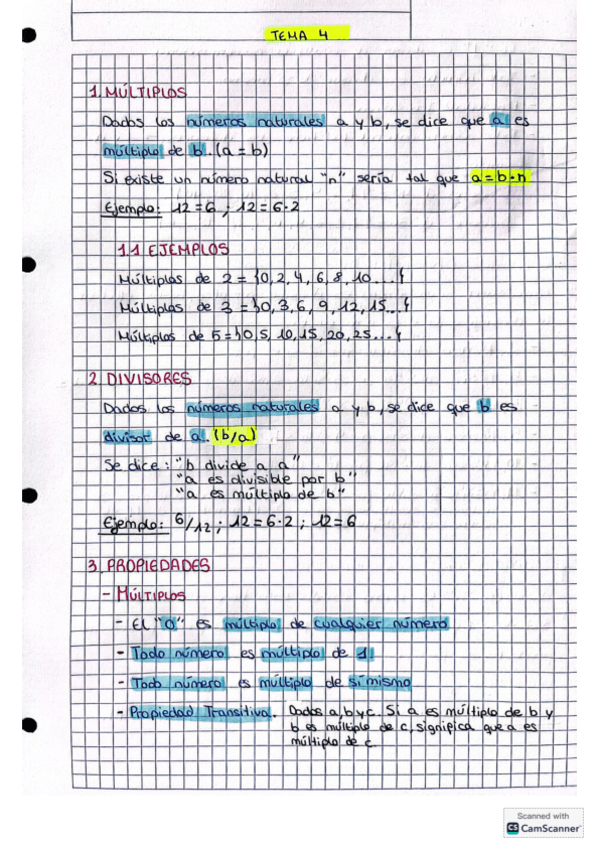 TEMA 4
1. MÚLTIPLOS
Dados los números naturales a y b, se dice que a es
múltiplo de b. (a = b)
Si existe un número natural "n" sería tal que a = b·n
Ejemplo: 12 = 6 ; 12 = 6·2
1.1 EJEMPLOS
Múltiplos de 2 = }0, 2, 4, 6, 8, 10...{
Múltiplos de 3 = }0, 3, 6, 9, 12, 15...{
Múltiplos de 5 = }0, 5, 10, 15, 20, 25...{
2. DIVISORES
Dados los números naturales a y b, se dice que b es
divisor de a. (b/a)
Se dice: "b divide a a"
"a es divisible por b"
"a es múltiplo de b"
Ejemplo: 6/12 ; 12 = 6·2 ; 12 = 6
3. PROPIEDADES
- MÚLTIPLOS
- El "0" es múltiplo de cualquier número
- Todo número es múltiplo de 1
- Todo número es múltiplo de sí mismo
- Propiedad Transitiva. Dados a, b y c. Si a es múltiplo de b y
b es múltiplo de c, significa que a es
múltiplo de c.
Scanned with
CS CamScanner